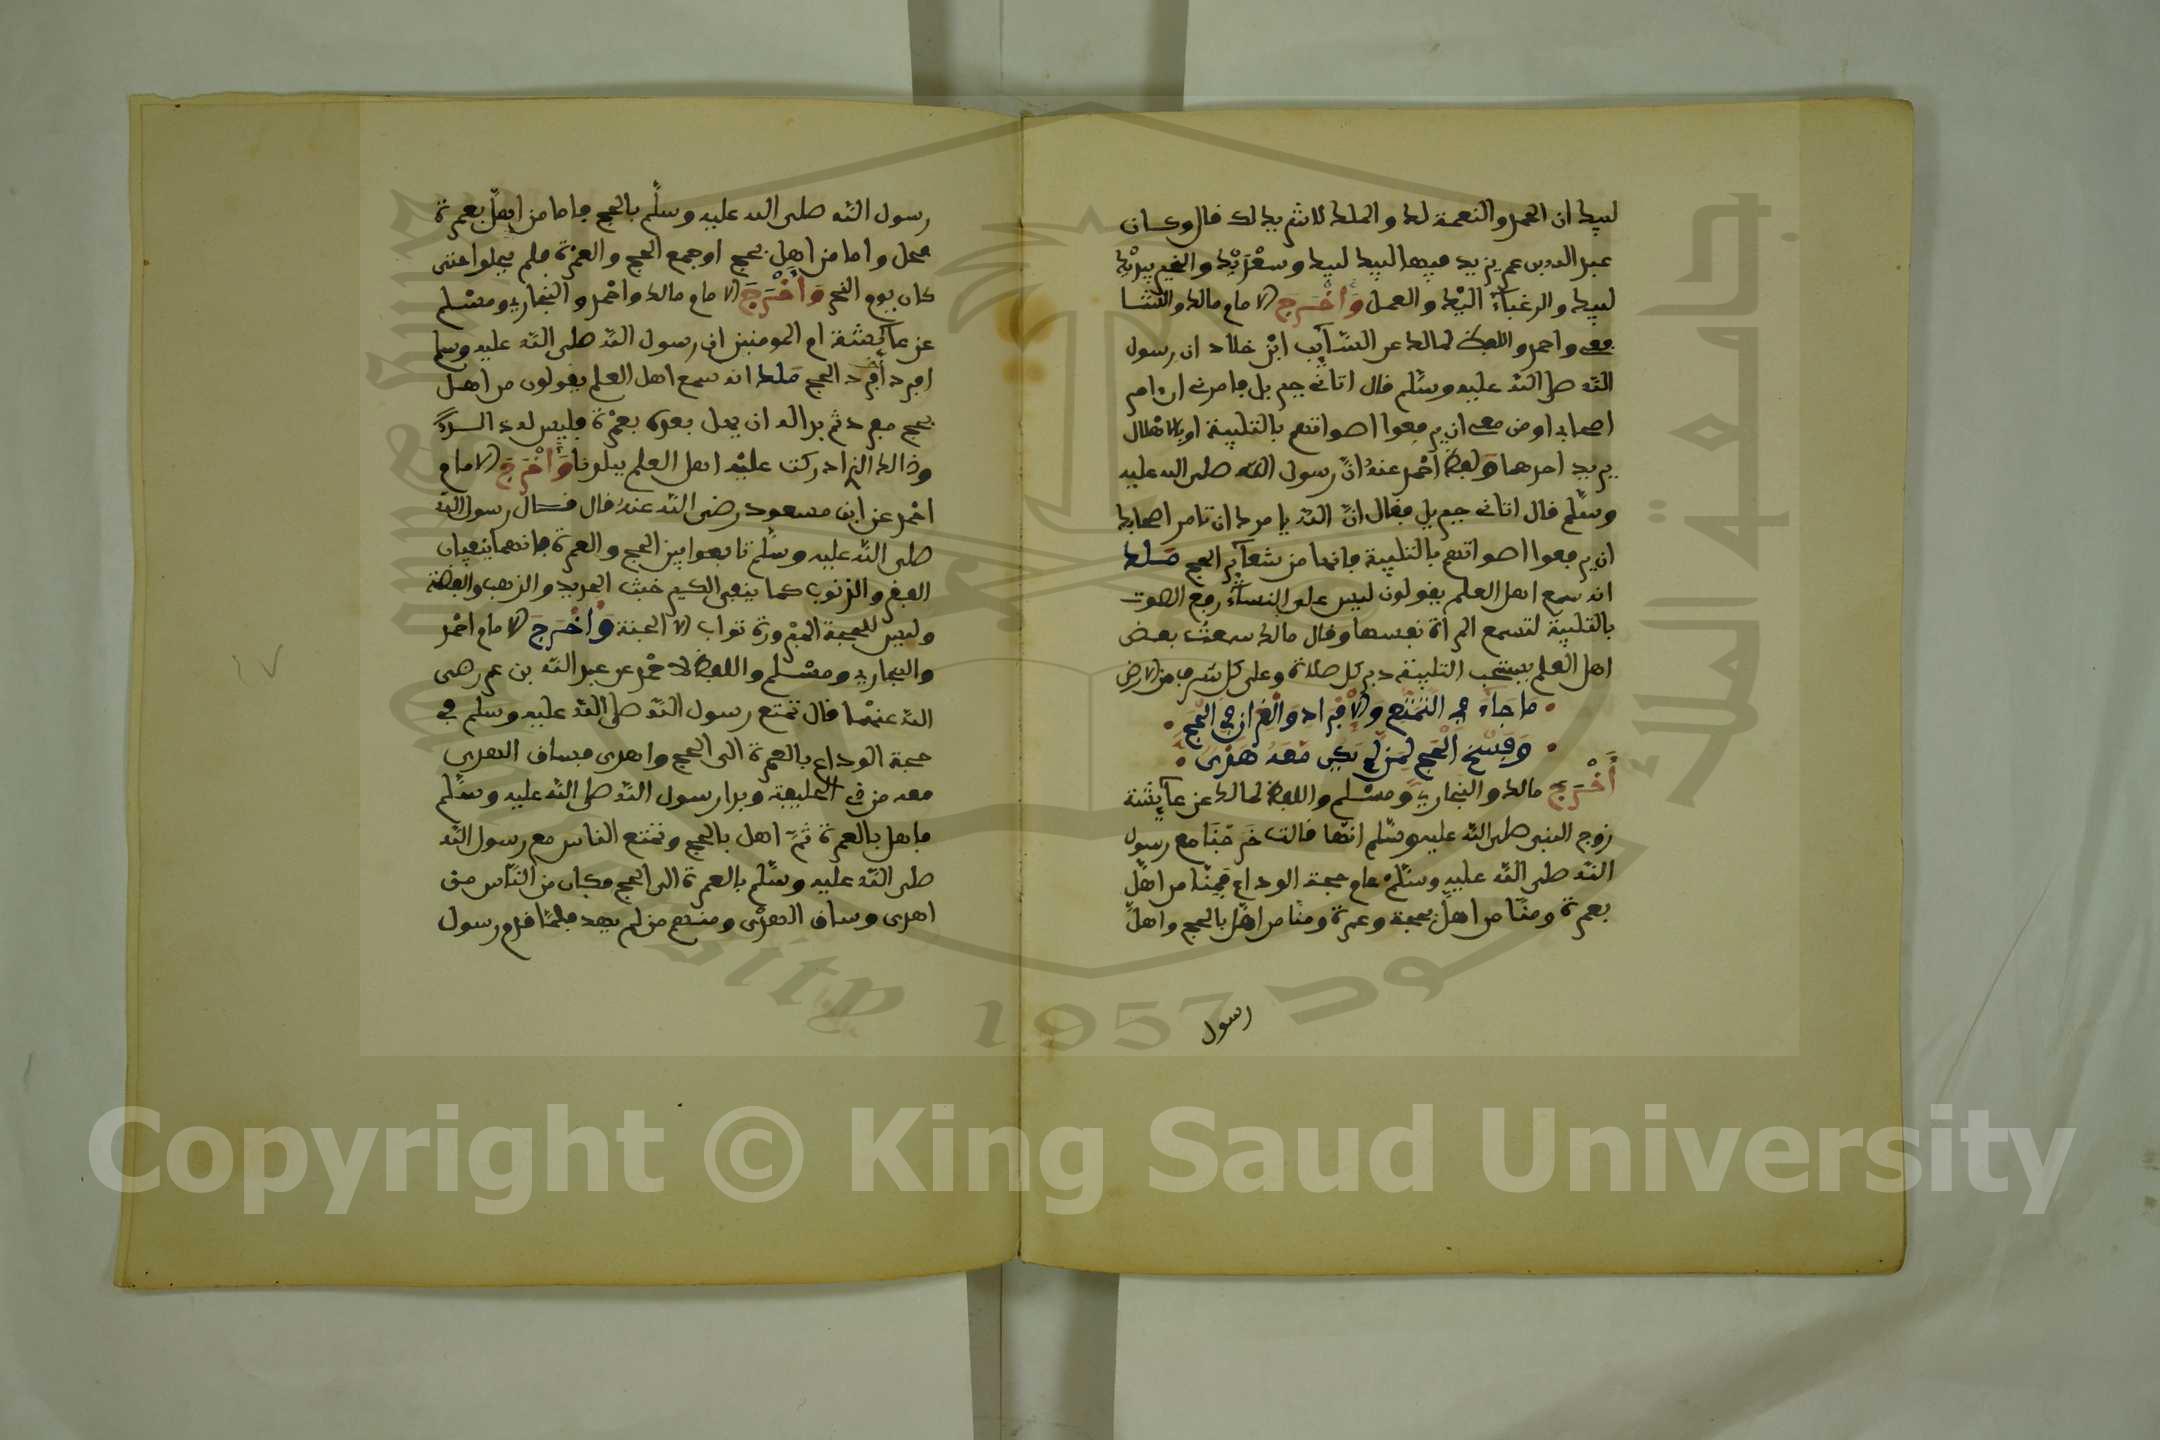 لبيك ان الحمد والنعمة لك والملك لا شريك لك قال وكان
عبد الله بن عمر يزيد فيها لبيك لبيك وسعديك والخير بيديك
لبيك والرغباء اليك والعمل وأخرج الامام مالك والشا
فعي واحمد واللفظ لمالك عن السائب ابن خلاد ان رسول
الله صلى الله عليه وسلم قال اتاني جبريل فامرني ان امر
اصحابي او من معي ان يرفعوا اصواتهم بالتلبية او بالاهلال
يريد احدهما ولفظ احمد عنه ان رسول الله صلى الله عليه
وسلم قال اتاني جبريل فقال ان الله يامرك ان تامر اصحابك
ان يرفعوا اصواتهم بالتلبية فانها من شعائر الحج ملك
انه سمع اهل العلم يقولون ليس على النساء رفع الصوت
بالتلبية لتسمع المرأة نفسها وقال مالك سمعت بعض
اهل العلم يستحب التلبية دبر كل صلاة وعلى كل شرف من الارض
ما جاء في التمتع والافراد والقران في الحج
وفسخ الحج لمن لم يكن معه هدى
أخرج مالك والبخاري ومسلم واللفظ لمالك عن عائشة
زوج النبي صلى الله عليه وسلم انها قالت خرجنا مع رسول
الله صلى الله عليه وسلم عام حجة الوداع فمنا من اهل
بعمرة ومنا من اهل بحجة وعمرة ومنا من اهل بالحج واهل
رسول
رسول الله صلى الله عليه وسلم بالحج فاما من اهل بعمرة
فحل واما من اهل بحج او جمع الحج والعمرة فلم يحلوا حتى
كان يوم النحر وأخرج الامام مالك واحمد والبخاري ومسلم
عن عائشة ام المومنين ان رسول الله صلى الله عليه وسلم
افرد الحج ملك انه سمع اهل العلم يقولون من اهل
بحج مفرد ثم بدا له ان يهل بعده بعمرة فليس له ذالك
وذالك الذي ادركت عليه اهل العلم ببلدنا وأخرج الامام
احمد عن ابن مسعود رضى الله عنه قال قال رسول الله
صلى الله عليه وسلم تابعوا بين الحج والعمرة فانهما ينفيان
الفقر والذنوب كما ينفى الكير خبث الحديد والذهب والفضة
وليس للحجة المبرورة ثواب الا الجنة وأخرج الامام احمد
والبخاري ومسلم واللفظ لاحمد عن عبد الله بن عمر رضى
الله عنهما قال تمتع رسول الله صلى الله عليه وسلم في
حجة الوداع بالعمرة الى الحج واهدى فساق الهدى
معه من ذي الحليفة وبدا رسول الله صلى الله عليه وسلم
فاهل بالعمرة ثم اهل بالحج وتمتع الناس مع رسول الله
صلى الله عليه وسلم بالعمرة الى الحج فكان من الناس من
اهدى وساق الهدى ومنهم من لم يهد فلما قدم رسول
١٧
جامعة الملك سعود
King Saud University 1957
Copyright © King Saud University